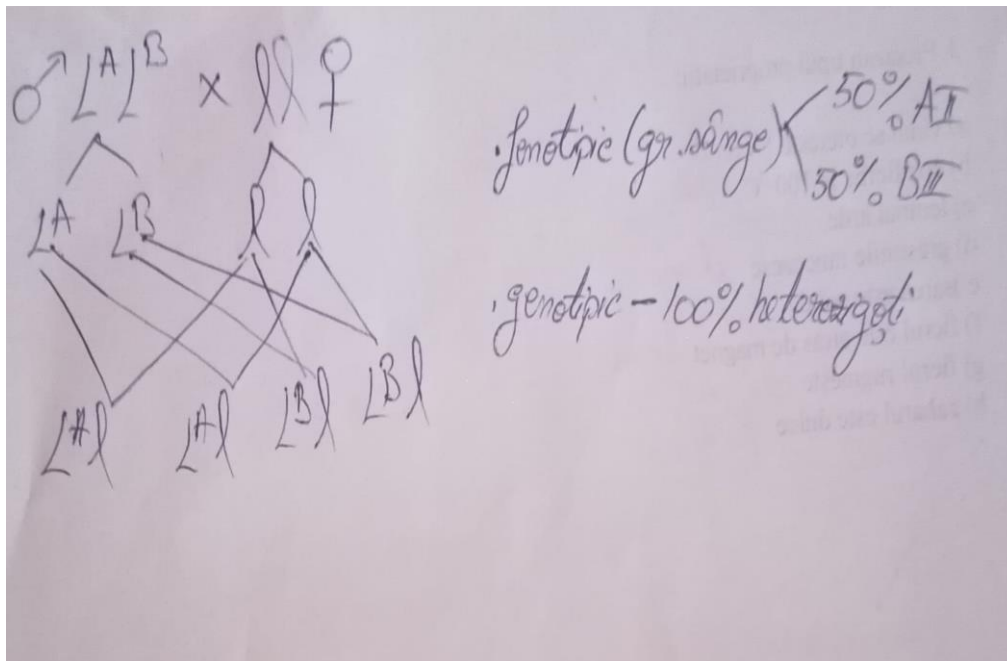 ♂ Lᴬ Lᴮ × ll ♀
Lᴬ Lᴮ l l
Lᴬl Lᴬl Lᴮl Lᴮl
· fenotipic (gr. sânge) 50% AII
50% BIII
· genotipic – 100% heterozigoți